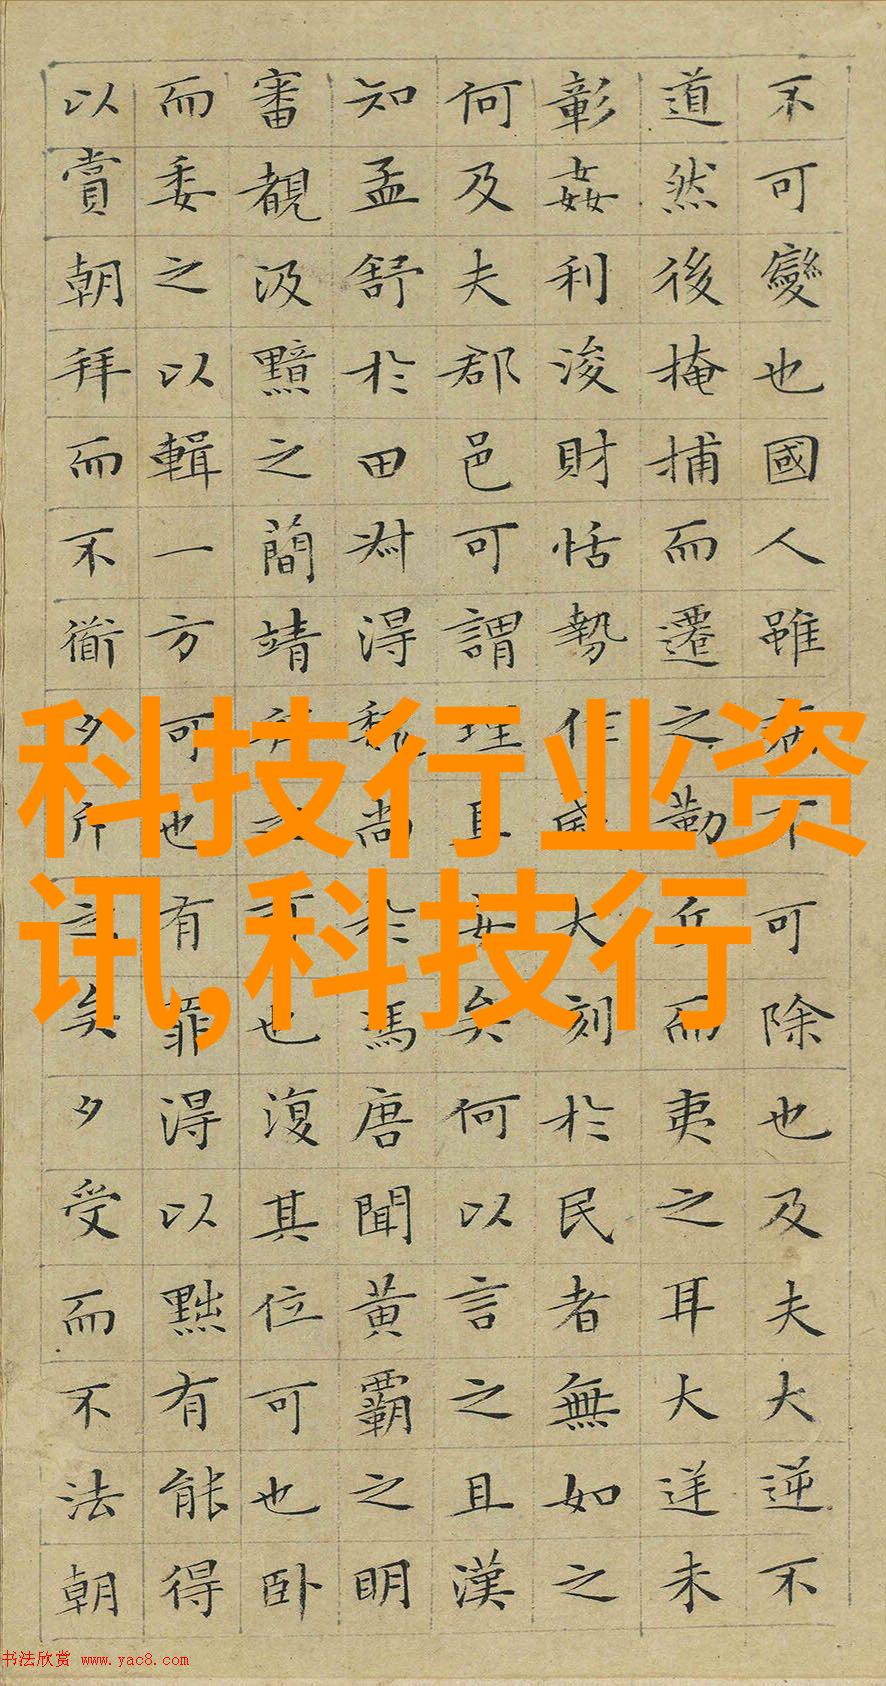 不可變也國人雖病不可除也及夫大逆不
道然後掩捕而遷之勤兵而夷之耳大逆未
彰姦利浚財恬勢作威大刻於民者無如之
何及夫郡邑可謂理且安矣何以言之且漢
知孟舒於田叔得魏尚於馮唐聞黃霸之明
審覩汲黯之簡靖拜之可也復其位可也卧
而委之以輯一方可也有罪得以黜有能得
以賞朝拜而不衜夕斥之矣夕受而不法朝
科技行业资
讯,科技行
书法欣赏 www.yac8.com